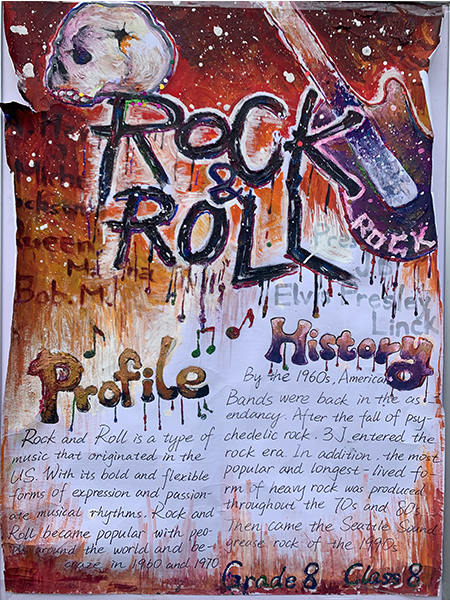 ROCK
&
ROLL
ROCK
Queen
Bob. M.
Elvis Presley
Linck
Profile
Rock and Roll is a type of
music that originated in the
US. With its bold and flexible
forms of expression and passion-
ate musical rhythms. Rock and
Roll became popular with peo-
ple around the world and be-
craze in 1960 and 1970
History
By the 1960s, American
Bands were back in the as
endancy. After the fall of psy-
chedelic rock. 3J entered the
rock era. In addition. the most
popular and longest-lived fo-
rm of heavy rock was produced
throughout the 70s and 80s.
Then came the Seattle Sound
grease rock of the 1990s
Grade 8 Class 8